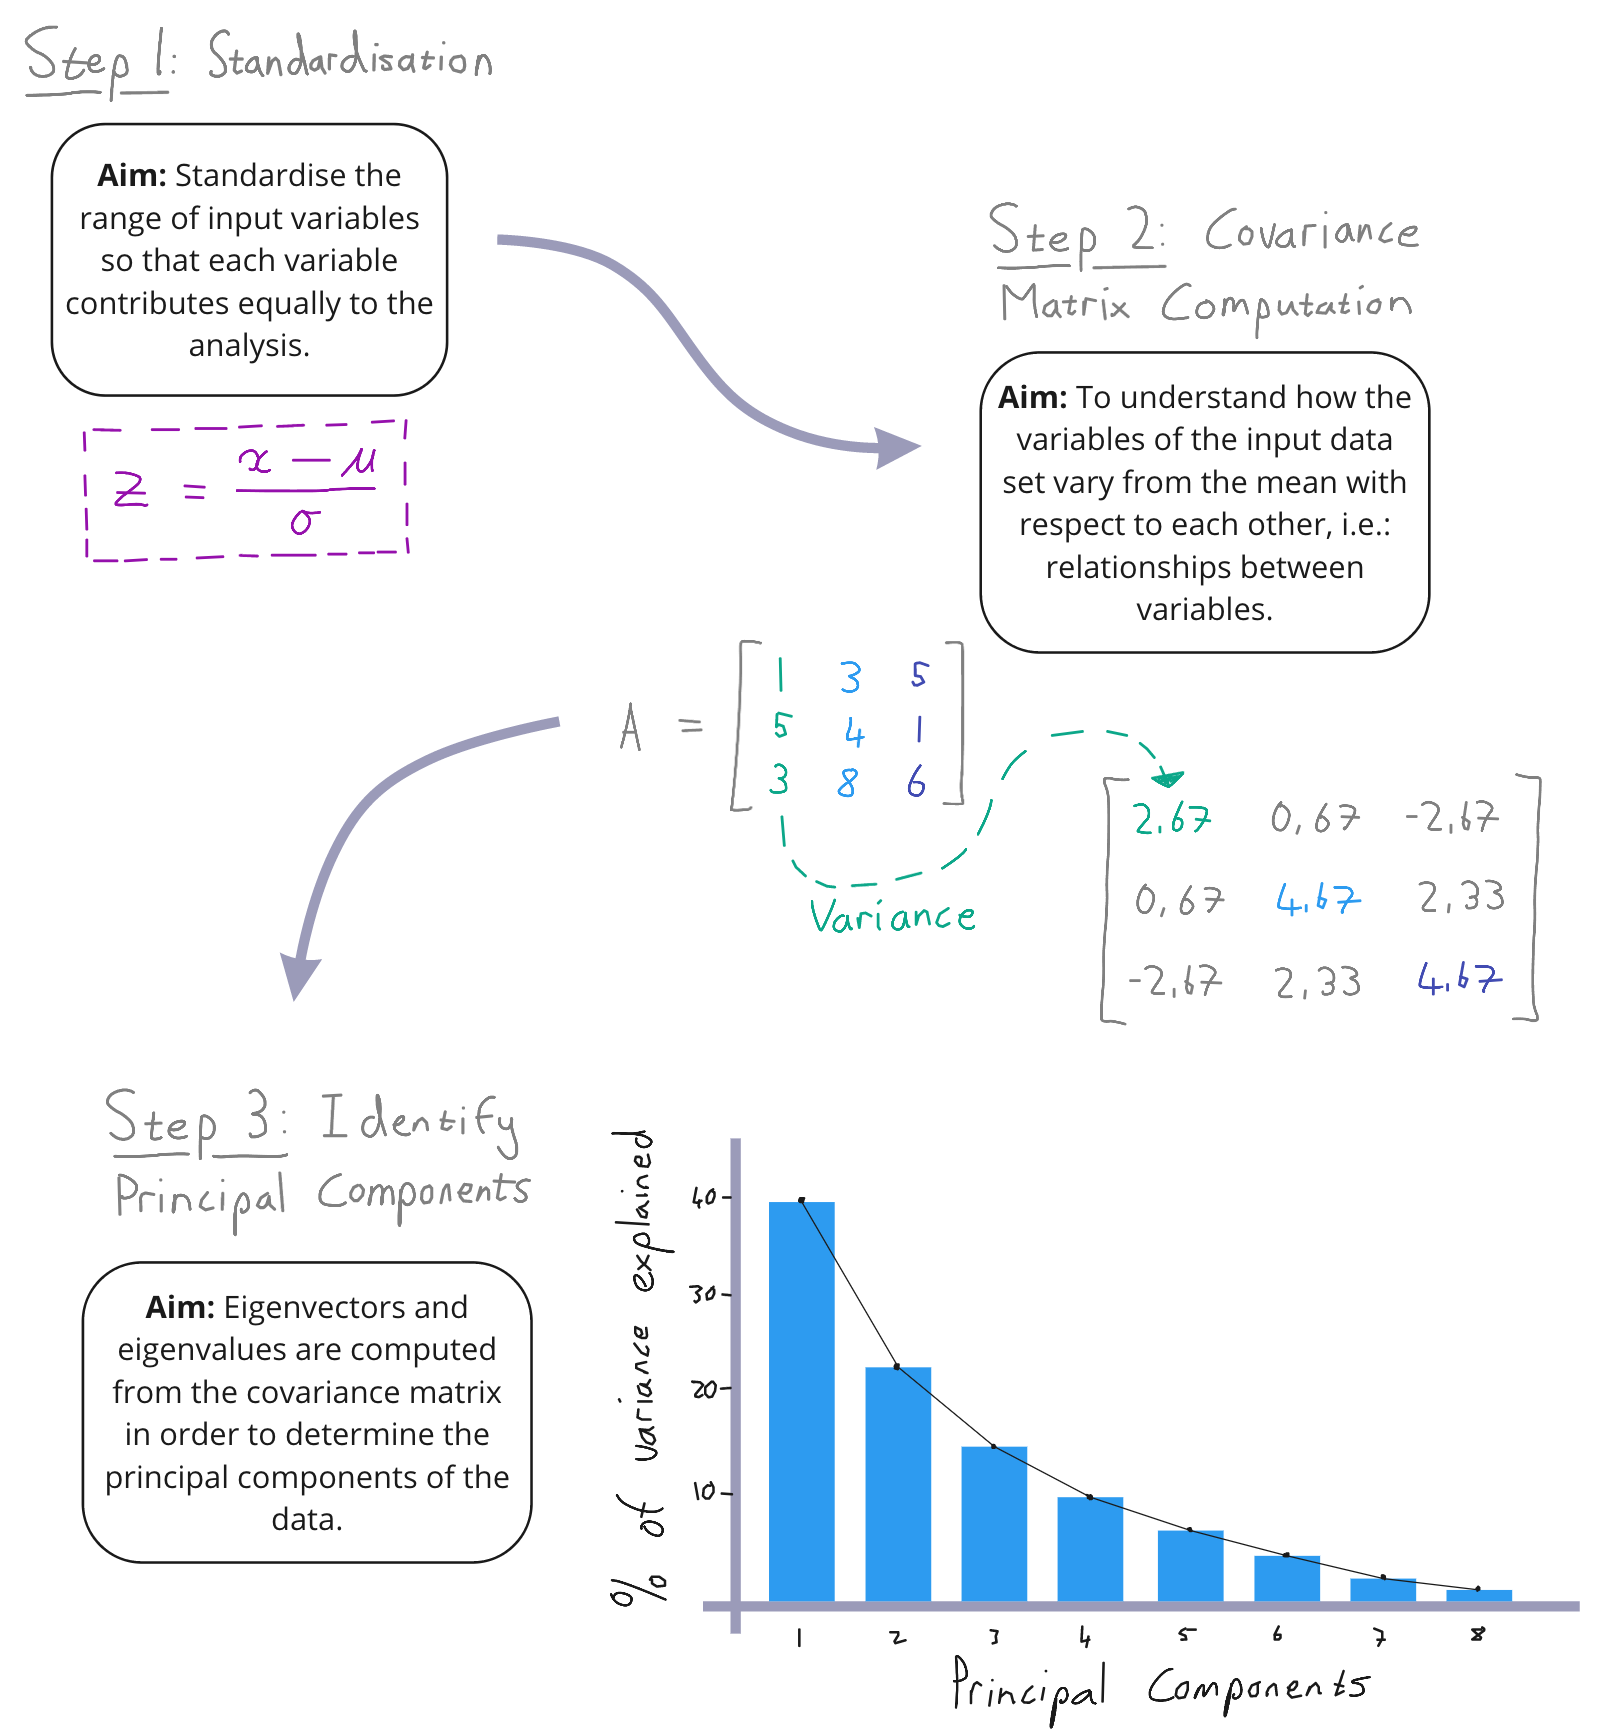 Step 1: Standardisation
Aim: Standardise the
range of input variables
so that each variable
contributes equally to the
analysis.
z = (x − μ) / σ
Step 2: Covariance
Matrix Computation
Aim: To understand how the
variables of the input data
set vary from the mean with
respect to each other, i.e.:
relationships between
variables.
A = [
1 3 5
5 4 1
3 8 6
]
Variance
2,67 0,67 -2,67
0,67 4,67 2,33
-2,67 2,33 4,67
Step 3: Identify
Principal Components
Aim: Eigenvectors and
eigenvalues are computed
from the covariance matrix
in order to determine the
principal components of the
data.
% of variance explained
40
30
20
10
1 2 3 4 5 6 7 8
Principal Components